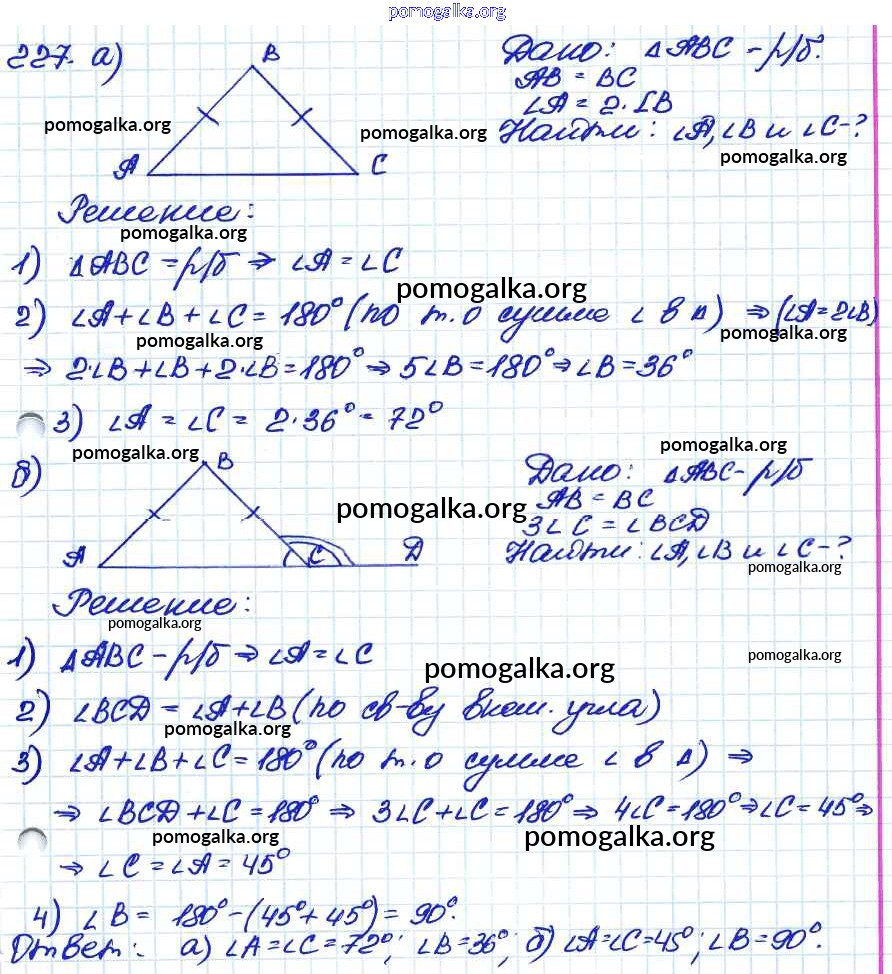 pomogalka.org
227. а) B Дано: △ABC - р/б.
AB = BC
∠A = 2·∠B
pomogalka.org pomogalka.org Найти: ∠A, ∠B и ∠C - ?
A C pomogalka.org
Решение:
pomogalka.org
1) △ABC = р/б ⇒ ∠A = ∠C
pomogalka.org
2) ∠A + ∠B + ∠C = 180° (по т. о сумме ∠ в △) ⇒ (∠A = 2∠B)
pomogalka.org pomogalka.org
⇒ 2·∠B + ∠B + 2·∠B = 180° ⇒ 5∠B = 180° ⇒ ∠B = 36°
3) ∠A = ∠C = 2·36° = 72°
pomogalka.org pomogalka.org
б) B Дано: △ABC - р/б
AB = BC
pomogalka.org
3∠C = ∠BCD
A C D Найти: ∠A, ∠B и ∠C - ?
pomogalka.org
Решение:
pomogalka.org
1) △ABC - р/б ⇒ ∠A = ∠C
pomogalka.org pomogalka.org
2) ∠BCD = ∠A + ∠B (по св-ву внеш. угла)
pomogalka.org
3) ∠A + ∠B + ∠C = 180° (по т. о сумме ∠ в △) ⇒
⇒ ∠BCD + ∠C = 180° ⇒ 3∠C + ∠C = 180° ⇒ 4∠C = 180° ⇒ ∠C = 45° ⇒
pomogalka.org pomogalka.org
⇒ ∠C = ∠A = 45°
4) ∠B = 180° - (45° + 45°) = 90°.
Ответ: а) ∠A = ∠C = 72°; ∠B = 36°; б) ∠A = ∠C = 45°; ∠B = 90°.